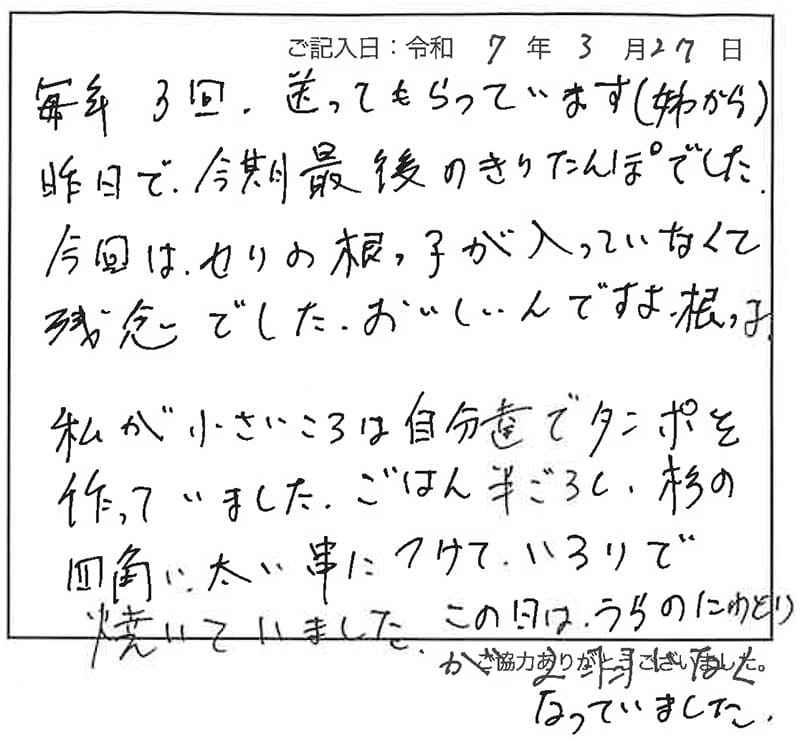 ご記入日：令和 7 年 3 月 27 日
毎年 3回、送ってもらっています(姉から)
昨日で、今期最後のきりたんぽでした。
今回は、せりの根っ子が入っていなくて
残念でした。おいしいんですよ、根っ子。
私が小さいころは自分達でタンポを
作っていました。ごはん半ごろし、杉の
四角い、太い串につけて、いろりで
焼いていました。この日は、うらのにわとり
が 2羽いなく
ご協力ありがとうございました。
なっていました。